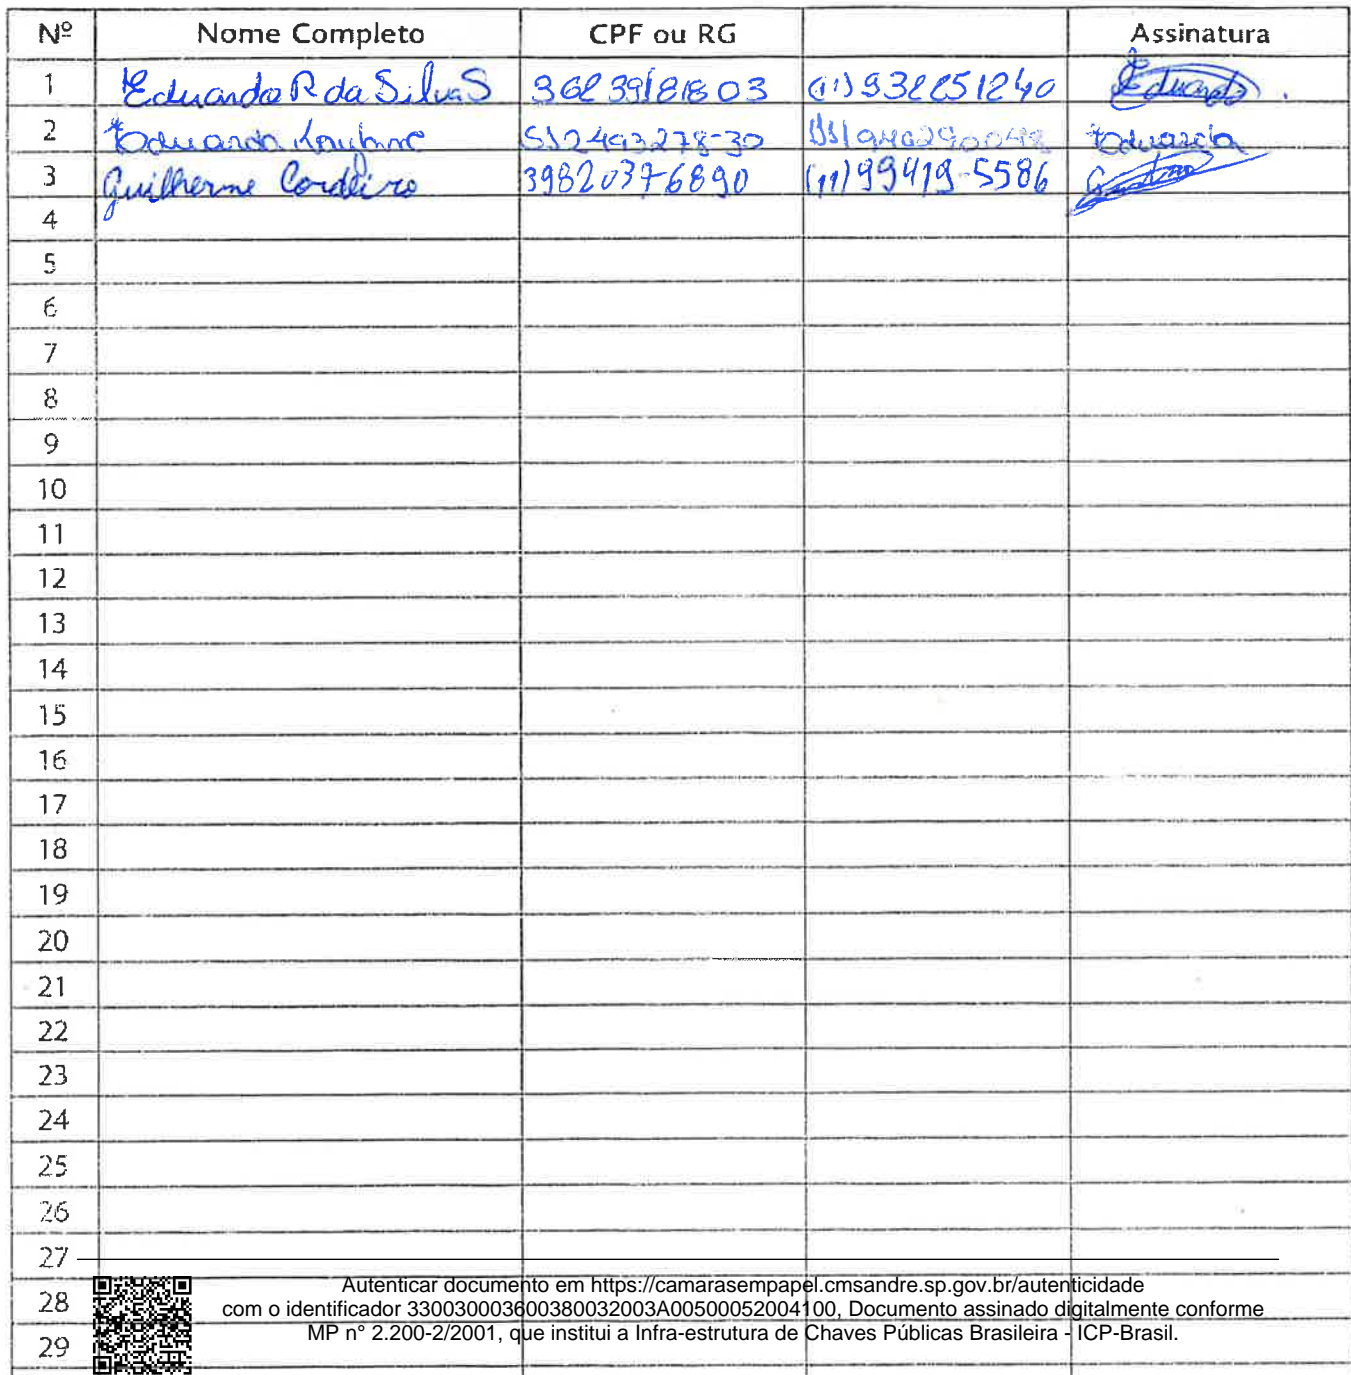 Nº Nome Completo CPF ou RG Assinatura
1 Eduardo R da Silva S 36239181803 (11) 932251240 Eduardo
2 Eduarda 512493278-30 Eduarda
3 Guilherme Cordeiro 39820376890 (11) 99419-5586
4
5
6
7
8
9
10
11
12
13
14
15
16
17
18
19
20
21
22
23
24
25
26
27
Autenticar documento em https://camarasempapel.cmsandre.sp.gov.br/autenticidade
28 com o identificador 330030003600380032003A00500052004100, Documento assinado digitalmente conforme
29 MP n° 2.200-2/2001, que institui a Infra-estrutura de Chaves Públicas Brasileira - ICP-Brasil.